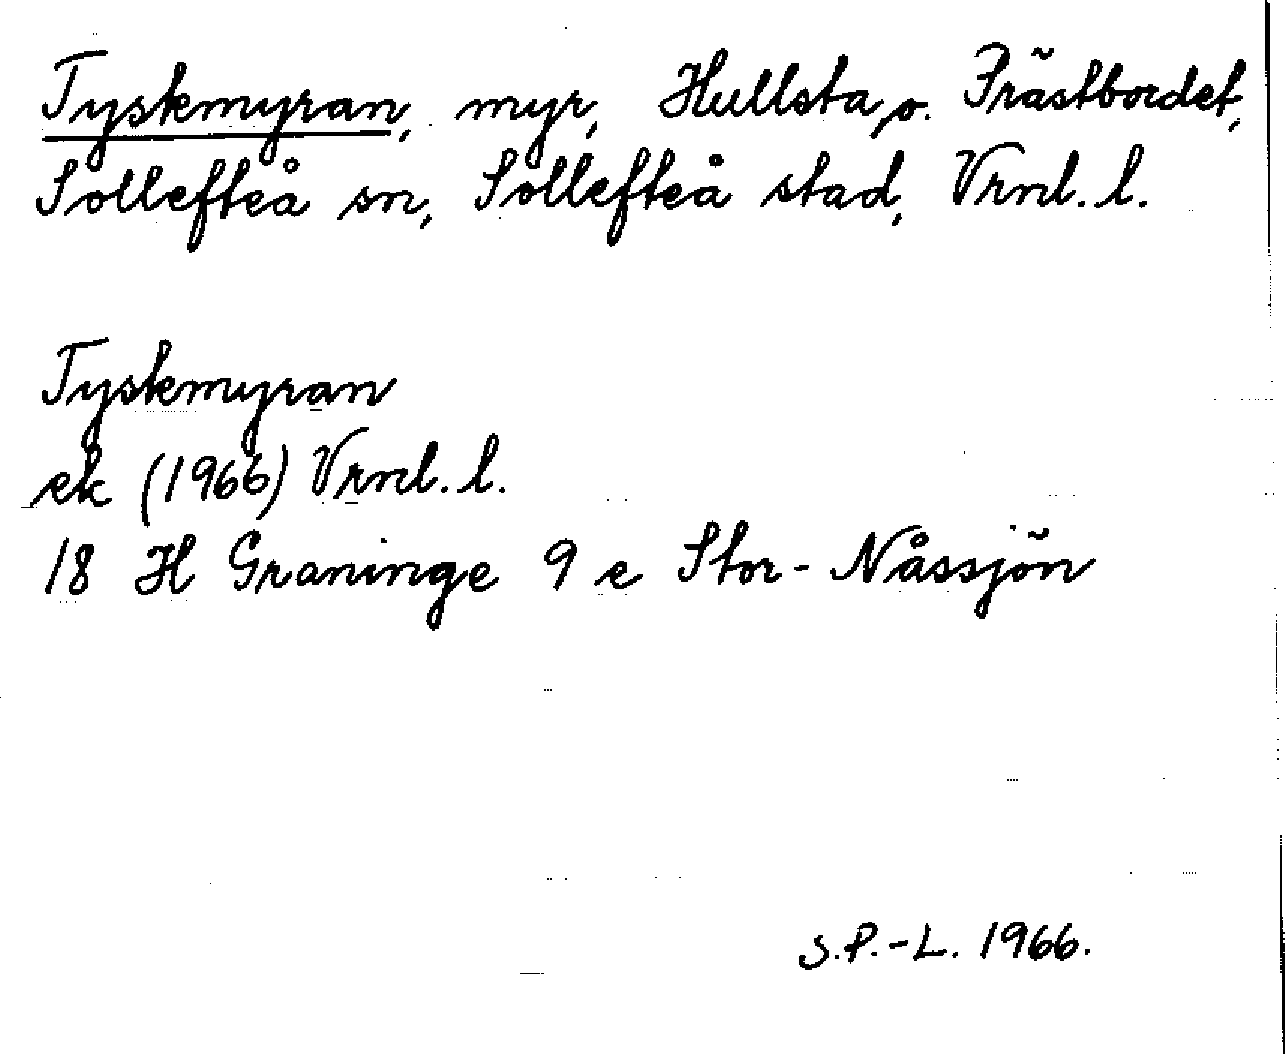 Tyskmyran, myr, Hullsta, o. Prästbordet,
Sollefteå sn, Sollefteå stad, Vrml. l.
Tyskmyran
ek (1966) Vrml. l.
18 H Graninge 9 e Stor-Nåssjön
S.P.-L. 1966.